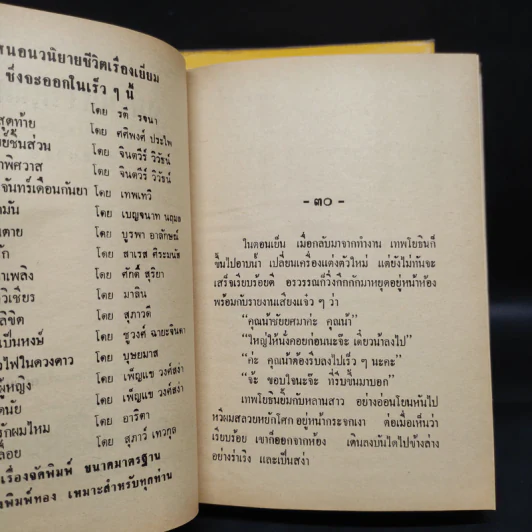 สนอนวนิยายชีวิตเรื่องเยี่ยม
ซึ่งจะออกในเร็ว ๆ นี้
สุดท้าย โดย รตี รจนา
ชิ้นส่วน โดย ศศิพงศ์ ประไพ
าพิศวาส โดย จินตวีร์ วิวัธน์
จันทร์เดือนกันยา โดย จินตวีร์ วิวัธน์
ามัน โดย เทพเทวี
นตาย โดย เบญจนาท นฤมล
รัก โดย บูรพา อาลักษณ์
าเพลิง โดย สาเรส ศิระมนัส
วิเชียร โดย ศักดิ์ สุริยา
ลิขิต โดย มาลิน
เป็นหงษ์ โดย สุภาวดี
ไฟในดวงดาว โดย ชูวงศ์ ฉายะจินดา
ผู้หญิง โดย บุษยมาส
ดนัย โดย เพ็ญแข วงศ์สง่า
รักผมไหม โดย เพ็ญแข วงศ์สง่า
ล้อย โดย อาริตา
โดย สุภาว์ เทวกุล
เรื่องจัดพิมพ์ ขนาดมาตรฐาน
พิมพ์ทอง เหมาะสำหรับทุกท่าน
- ๓๐ -
ในตอนเย็น เมื่อกลับมาจากทำงาน เทพโยธินก็
ขึ้นไปอาบน้ำ เปลี่ยนเครื่องแต่งตัวใหม่ แต่ยังไม่ทันจะ
เสร็จเรียบร้อยดี อรวรรณก็วิ่งกึกกักมาหยุดอยู่หน้าห้อง
พร้อมกับรายงานเสียงแจ๋ว ๆ ว่า
“คุณน้าชัยยศมาค่ะ คุณน้า”
“ใหญ่ให้นั่งคอยก่อนนะจ๊ะ เดี๋ยวน้าลงไป”
“ค่ะ คุณน้าต้องรีบลงไปเร็ว ๆ นะคะ”
“จ้ะ ขอบใจนะจ๊ะ ที่รีบขึ้นมาบอก”
เทพโยธินยิ้มกับหลานสาว อย่างอ่อนโยนหันไป
หวีผมสลวยหยักโศก อยู่หน้ากระจกเงา ต่อเมื่อเห็นว่า
เรียบร้อย เขาก็ออกจากห้อง เดินลงบันไดไปข้างล่าง
อย่างร่าเริง และเป็นสง่า